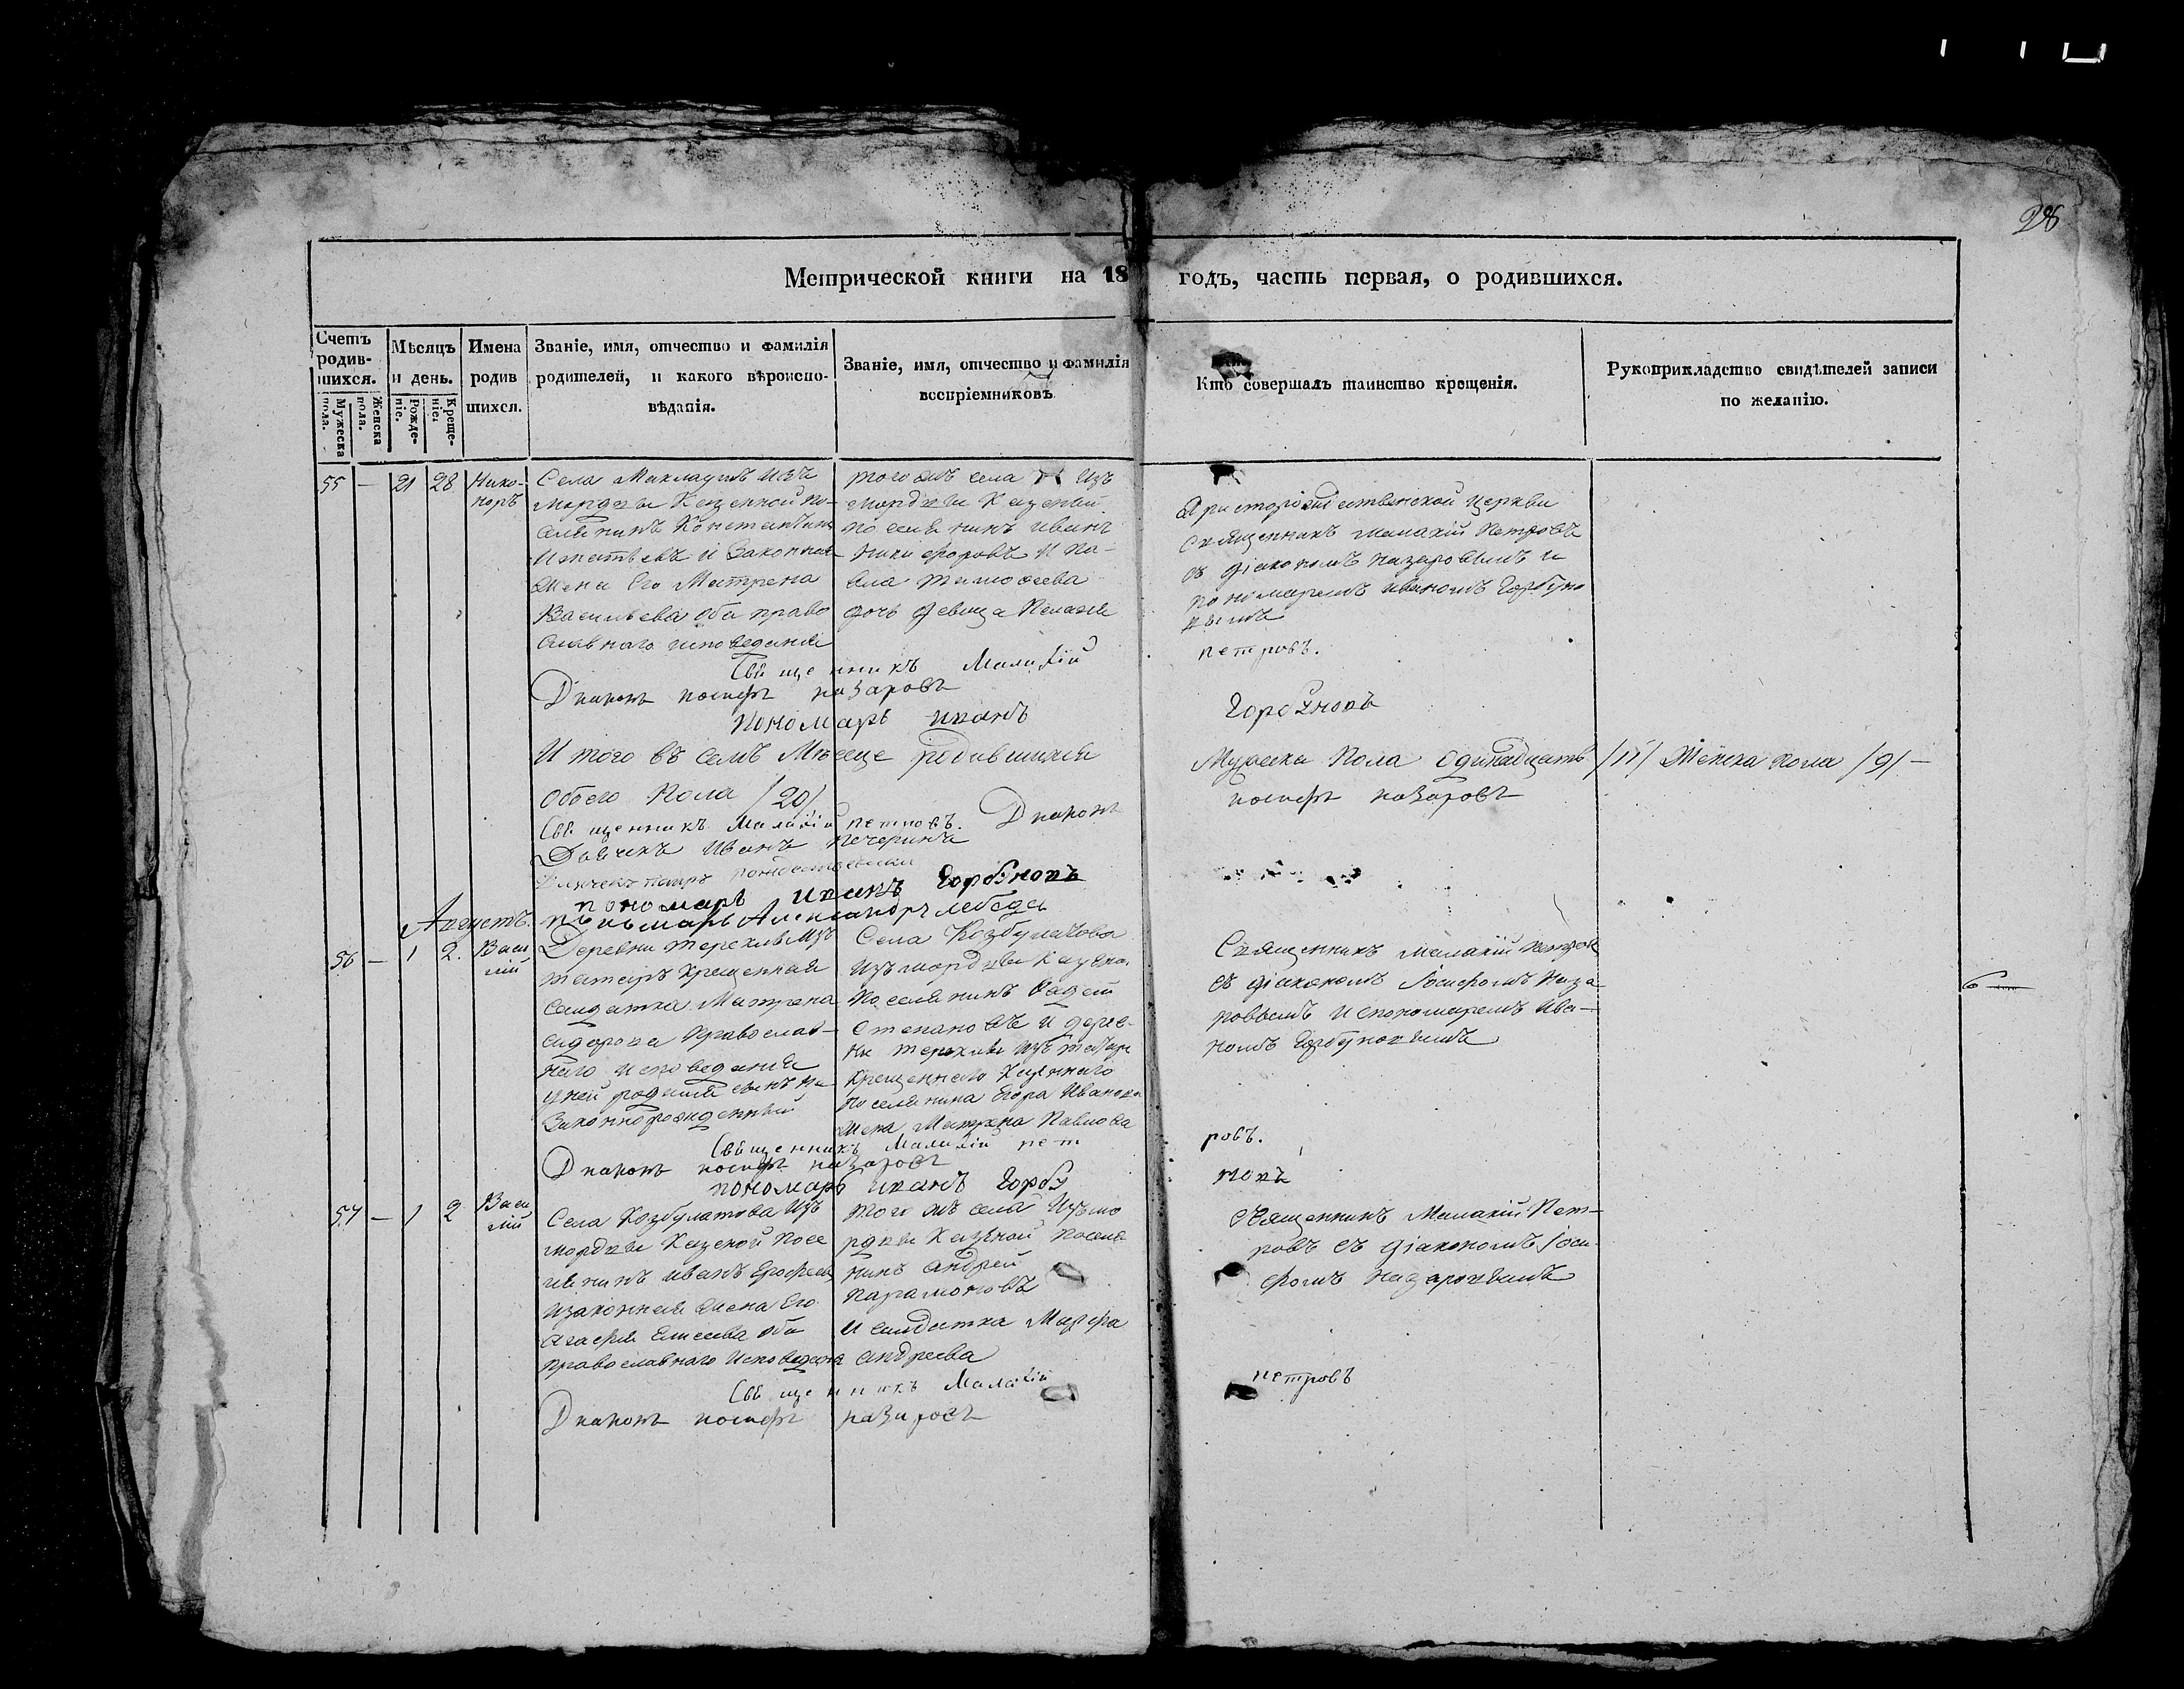 28
Метрической книги на 18 годъ, часть первая, о родившихся.
Счетъ родив-шихся.
Мужеска пола.
Женска пола.
Мѣсяцъ и день.
Рожде-ніе.
Креще-ніе.
Имена родив шихся.
Званіе, имя, отчество и фамилія
родителей, и какого вѣроиспо-
вѣданія.
Званіе, имя, отчество и фамилія
воспріемниковъ
Кто совершалъ таинство крещенія.
Рукоприкладство свидѣтелей записи
по желанію.
55 — 21 28 Нико-
норъ
Села Маклаушъ изъ
мордвы Казенной по-
селянинъ Константинъ
Игнатьевъ и Законная
Жена Его Матрена
Васильева оба право
славнаго исповедания
тогожъ села изъ
мордвы Казеный
поселянинъ иванъ
Никифоровъ и Па-
вла тимофеева
дочь девица Пелагия
церкви
Священникъ малахій Петровъ
съ діакономъ назаровымъ и
пономаремъ иваномъ Горбуно
вымъ
Священникъ Малахій петровъ.
Диаконъ иосифъ назаровъ
пономарь иванъ Горбуновъ
И того въ семъ Месеце родившихся Мужеска Пола одинадцать /11/ Женска пола /9/ —
Обоего Пола /20/
Священникъ Малахій петровъ. Диаконъ иосифъ назаровъ
Дьячекъ Иванъ Печеринъ
Дьячекъ петръ
пономарь иванъ Горбуновъ
пономарь Александръ лебедев
Августъ.
56 — 1 2. Васи
лій
Деревни терехив изъ
татаръ крещенная
салдатка Матрена
сидорова Православ-
наго исповедания
уней родился сынъ не
Законнорожденный
Села Козбулатова
изъ мордвы Казено
поселянинъ Фадей
степановъ и дерев-
ни терехив изъ татаръ
крещеннаго Казеннаго
поселянина Егора Иванова
жена Матрена Павлова
Священникъ малахій Петровъ
съ діакономъ Іосифомъ Наза
ровымъ и спономаремъ Ива—
номъ Горбуновымъ
6
Священникъ Малахій петровъ.
Диаконъ иосифъ назаровъ
пономарь иванъ Горбуновъ
57 — 1 2 Васи
лій
Села Козбулатова изъ
мордвы Казеной Посе
лянинъ иванъ Ерофеевъ
изаконная жена Его
Агафия Елисеева оба
православнаго исповедания
того жъ села изъ мо
рдвы Казеной поселя
нинъ андрей
парамоновъ
и салдатка Марфа
андреева
священникъ Малахій Пет—
ровъ съ діакономъ Іоси
фомъ назаровымъ
Священникъ Малахій петровъ
Диаконъ иосифъ назаровъ